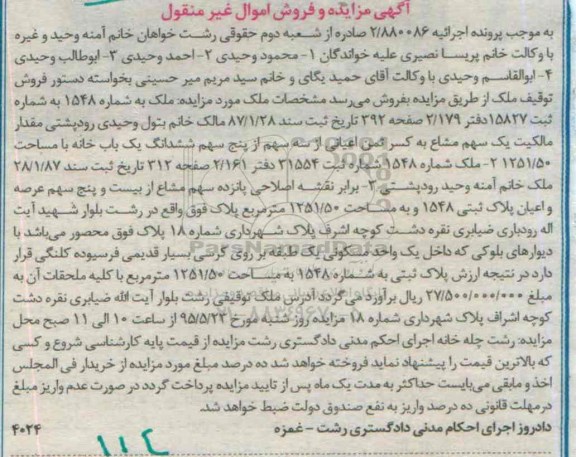 آگهی مزایده و فروش اموال غیر منقول
به موجب پرونده اجرائیه ۲/۸۸۰۰۸۶ صادره از شعبه دوم حقوقی رشت خواهان خانم آمنه وحید و غیره
با وکالت خانم پریسا نصیری علیه خواندگان ۱- محمود وحیدی ۲- احمد وحیدی ۳- ابوطالب وحیدی
۴- ابوالقاسم وحیدی با وکالت آقای حمید یگای و خانم سید مریم میر حسینی بخواسته دستور فروش
توقیف ملک از طریق مزایده بفروش می‌رسد مشخصات ملک مورد مزایده: ملک به شماره ۱۵۴۸ به شماره
ثبت ۱۵۸۲۷ دفتر ۲/۱۷۹ صفحه ۳۹۲ تاریخ ثبت سند ۸۷/۱/۲۸ مالک خانم بتول وحیدی رودپشتی مقدار
مالکیت یک سهم مشاع به کسر ثمن اعیانی از سه سهم از پنج سهم ششدانگ یک باب خانه با مساحت
۱۲۵۱/۵۰ ۲- ملک شماره ۱۵۴۸ شماره ثبت ۳۱۵۵۴ دفتر ۲/۱۶۱ صفحه ۳۱۲ تاریخ ثبت سند ۲۸/۱/۸۷
ملک خانم آمنه وحید رودپشتی ۳- برابر نقشه اصلاحی پانزده سهم مشاع از بیست و پنج سهم عرصه
و اعیان پلاک ثبتی ۱۵۴۸ و به مساحت ۱۲۵۱/۵۰ مترمربع پلاک فوق واقع در رشت بلوار شهید آیت
اله رودباری ضیابری نقره دشت کوچه اشرف پلاک شهرداری شماره ۱۸ پلاک فوق محصور می‌باشد با
دیوارهای بلوکی که داخل یک واحد مسکونی یک طبقه بر روی کرسی بسیار قدیمی فرسیوده کلنگی قرار
دارد در نتیجه ارزش پلاک ثبتی به شماره ۱۵۴۸ به مساحت ۱۲۵۱/۵۰ مترمربع با کلیه ملحقات آن به
مبلغ ۲۷/۵۰۰/۰۰۰/۰۰۰ ریال برآورد می گردد آدرس ملک توقیفی رشت بلوار آیت الله ضیابری نقره دشت
کوچه اشراف پلاک شهرداری شماره ۱۸ مزایده روز شنبه مورخ ۹۵/۵/۲۳ از ساعت ۱۰ الی ۱۱ صبح محل
مزایده: رشت چله خانه اجرای احکم مدنی دادگستری رشت مزایده از قیمت پایه کارشناسی شروع و کسی
که بالاترین قیمت را پیشنهاد نماید فروخته خواهد شد ده درصد مبلغ مورد مزایده از خریدار فی المجلس
اخذ و مابقی می‌بایست حداکثر به مدت یک ماه پس از تایید مزایده پرداخت گردد در صورت عدم واریز مبلغ
در مهلت قانونی ده درصد واریز به نفع صندوق دولت ضبط خواهد شد.
دادورز اجرای احکام مدنی دادگستری رشت - غمزه ۴۰۲۴